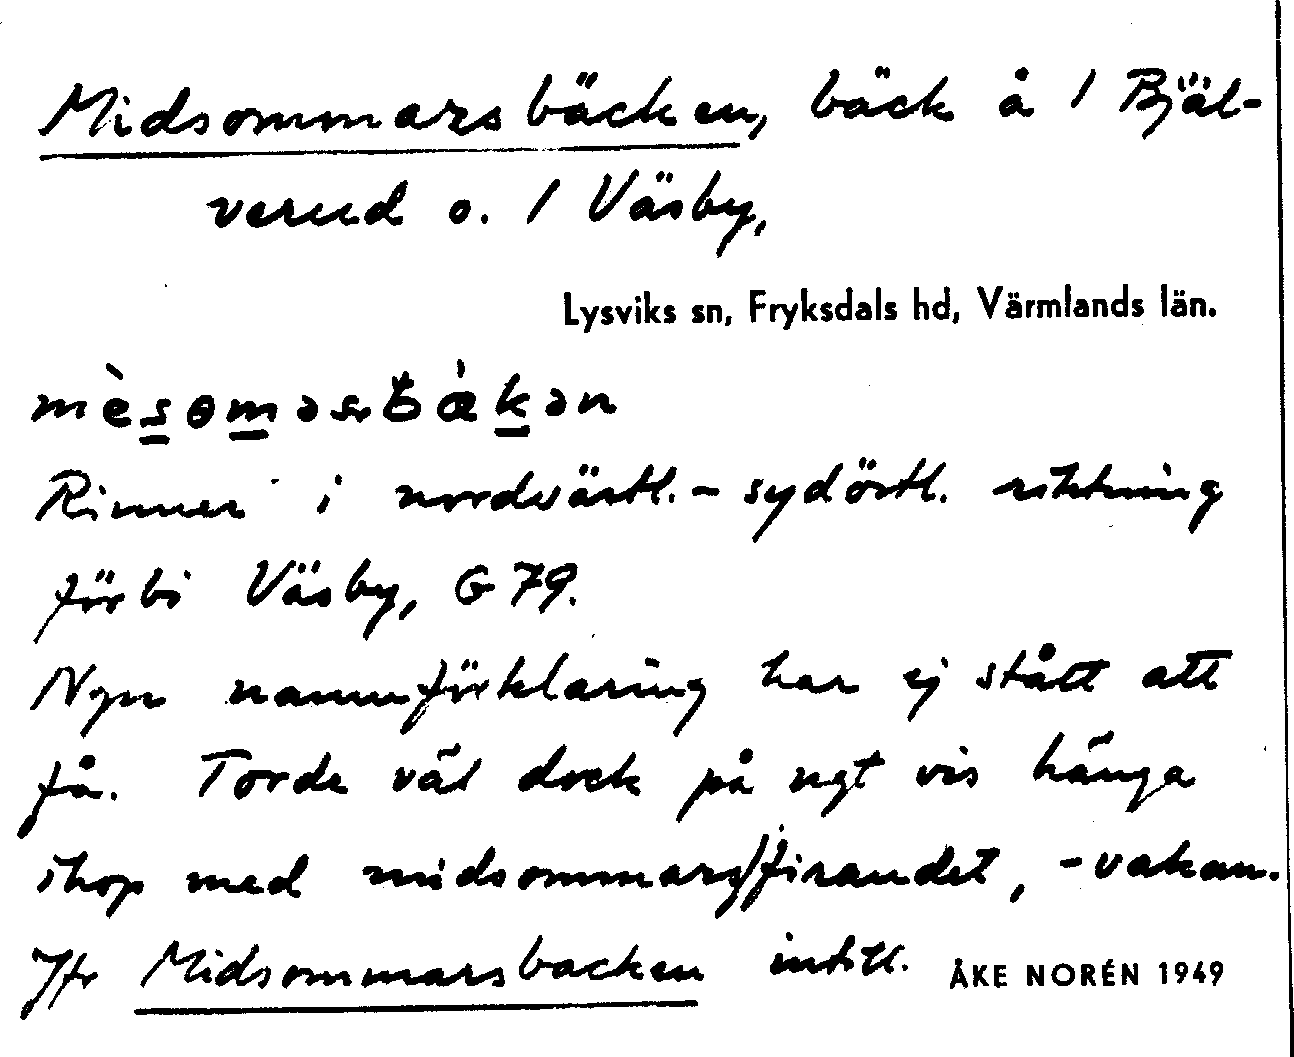 Midsommarsbäcken, bäck å 1 Bjäl-
verud o. 1 Väsby,
Lysviks sn, Fryksdals hd, Värmlands län.
Rinner i nordvästl.-sydöstl. riktning
förbi Väsby, G 79.
Ngn namnförklaring har ej stått att
få. Torde väl dock på ngt vis hänga
ihop med midsommarsfirandet, -vakan.
Jfr Midsommarsbacken intill. ÅKE NORÉN 1949